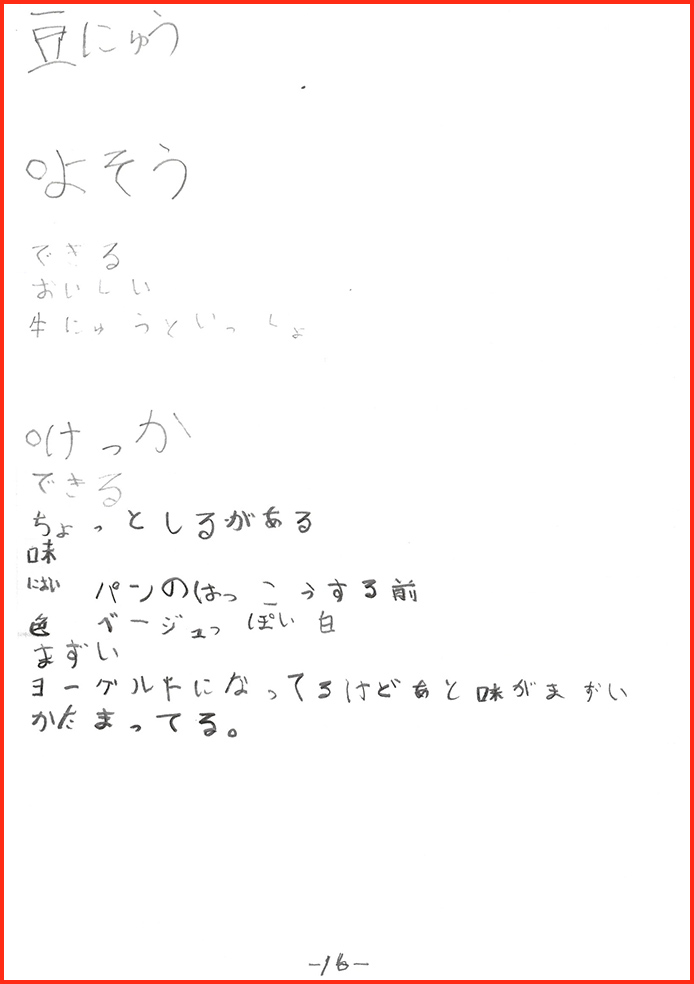 豆にゅう
○よそう
できる
おいしい
牛にゅうといっしょ
○けっか
できる
ちょっとしるがある
味
におい パンのはっこうする前
色 ベージュっぽい白
まずい
ヨーグルトになってるけどあと味がまずい
かたまってる。
-16-